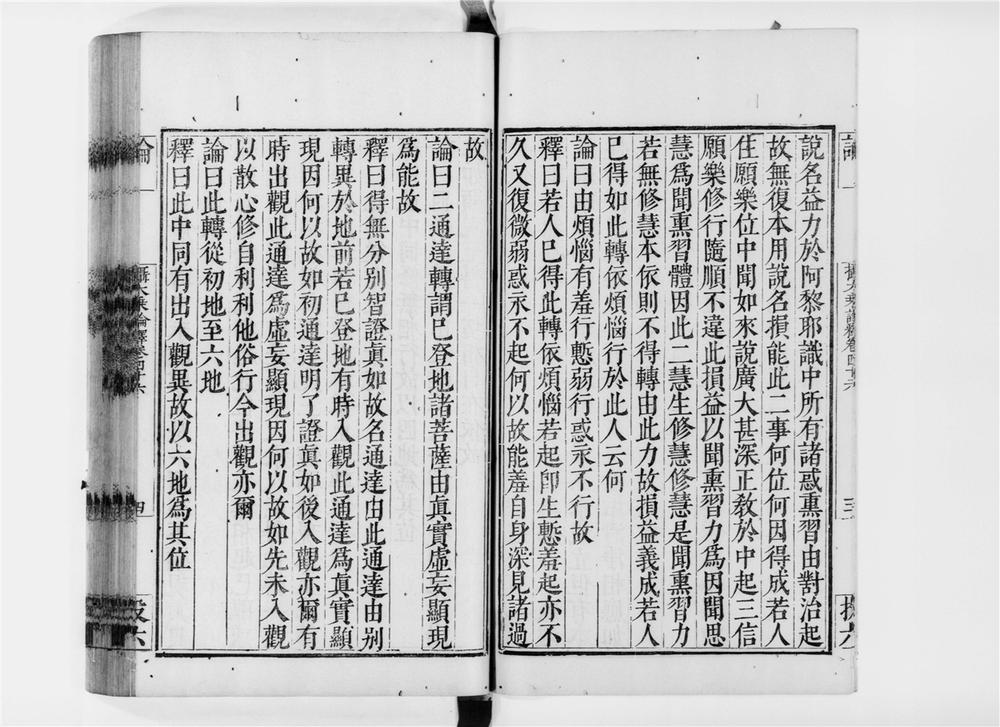 說名益力於阿黎耶識中所有諸惑熏習由對治起
故無復本用說名損能此二事何位何因得成若人
住願樂位中聞如來說廣大甚深正敎於中起三信
願樂修行隨順不違此損益以聞熏習力爲因聞思
慧爲聞熏習體因此二慧生修慧修慧是聞熏習力
若無修慧本依則不得轉由此力故損益義成若人
已得如此轉依煩惱行於此人云何
論曰由煩惱有羞行慙弱行惑永不行故
釋曰若人已得此轉依煩惱若起卽生慙羞起亦不
久又復微弱惑永不起何以故能羞自身深見諸過
故
論曰二通達轉謂已登地諸菩薩由眞實虛妄顯現
爲能故
釋曰得無分別智證眞如故名通達由此通達由別
轉異於地前若已登地有時入觀此通達爲眞實顯
現因何以故如初通達明了證眞如後入觀亦爾有
時出觀此通達爲虛妄顯現因何以故如先未入觀
以散心修自利利他俗行今出觀亦爾
論曰此轉從初地至六地
釋曰此中同有出入觀異故以六地爲其位
論
攝大乘論釋卷
四